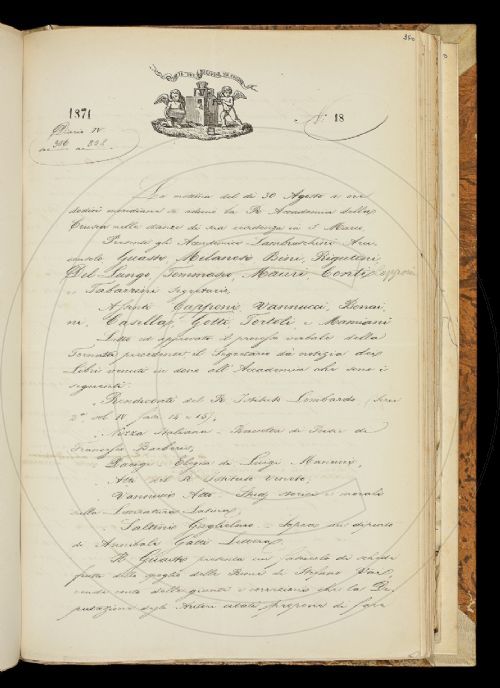 350
1871
N. 18
Diario IV
La mattina del dì 30 Agosto a ore
dodici meridiane si adunò la R. Accademia della
Crusca nelle stanze di sua residenza in S. Marco
Presenti gli Accademici Lambruschini Arci
consolo Guasti, Milanesi, Bini, Rigutini,
Del Lungo, Tommaseo, Mauri, Conti, Capponi
e Tabarrini Segretario,
Assenti Capponi, Vannucci, Bonai
ni, Casella, Gotti, Tortoli e Mamiani
Letto ed approvato il processo verbale della
Tornata precedente il Segretario dà notizia dei
Libri venuti in dono all'Accademia che sono i
seguenti:
Rendiconti del R. Istituto Lombardo (Serie
2ª vol. IV fasc. 14 e 15),
Nizza Italiana - Raccolta di Poesie di
Francesco Barberis,
Parigi Elegia di Luigi Mancini,
Atti del R. Istituto Veneto,
Vannucci Atto - Studj storici e morali
sulla Letteratura Latina,
Saltini Guglielmo - Sopra un dipinto
di Annibale Gatti Lettera,
Il Guasti presenta un di schede
frutto dello spoglio delle Rime di Stefano Vai,
rende conto dell'
putazione degli Autori citati propone di fare